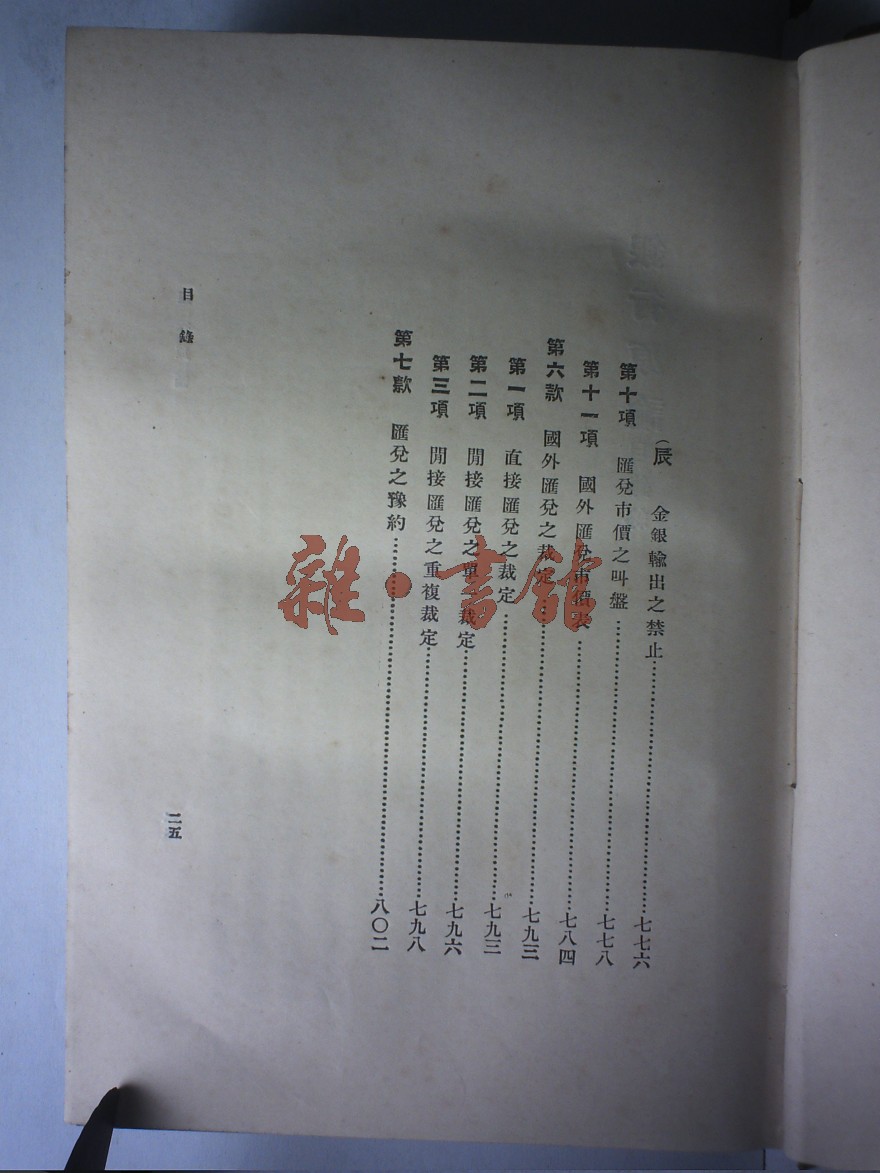 （辰　金銀輸出之禁止……七七六
第十項　匯兌市價之叫盤……七七八
第十一項　國外匯兌市價表……七八四
第六款　國外匯兌之裁定……七九三
第一項　直接匯兌之裁定……七九三
第二項　間接匯兌之單　裁定……七九六
第三項　間接匯兌之重複裁定……七九八
第七款　匯兌之豫約……八〇二
目錄
二五
雜·書館